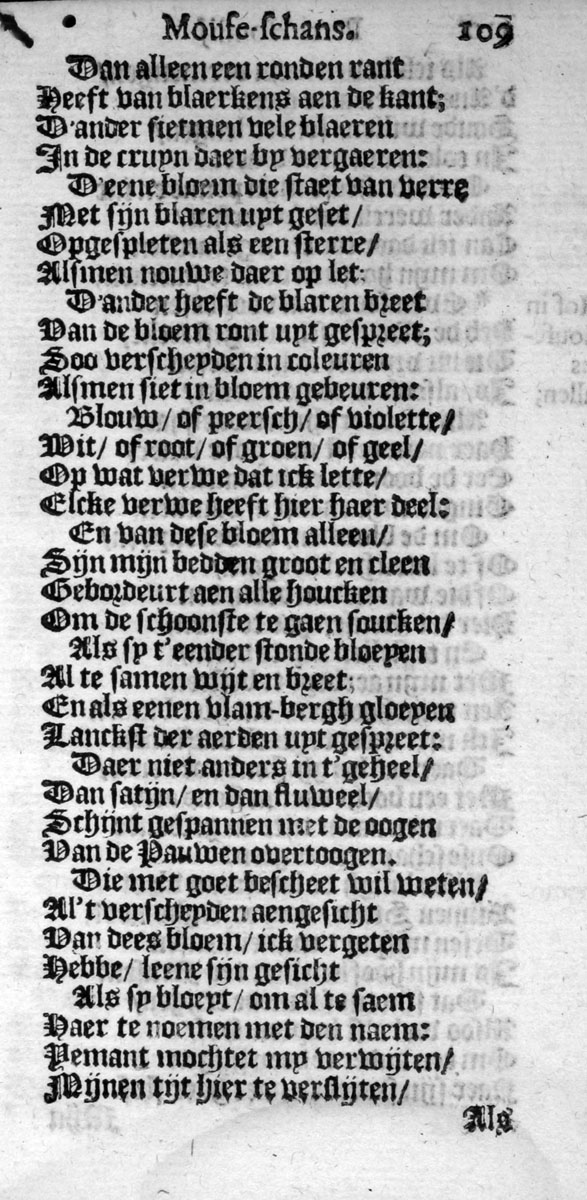 Mouse-schans. 109
Dan alleen een ronden rant
Heeft van blaerkens aen de kant;
D'ander sietmen vele blaeren
In de cruyn daer by vergaeren:
D'eene bloem die staet van verre
Met sijn blaren uyt geset/
Opgespleten als een sterre/
Alsmen nouwe daer op let:
D'ander heeft de blaren breet
Van de bloem ront uyt gespreet;
Soo verscheyden in coleuren
Alsmen siet in bloem gebeuren:
Blouw/ of peersch/ of violette/
Wit/ of root/ of groen/ of geel/
Op wat verwe dat ick lette/
Elcke verwe heeft hier haer deel:
En van dese bloem alleen/
Sijn mijn bedden groot en cleen
Gebordeurt aen alle houcken
Om de schoonste te gaen soucken/
Als sy t'eender stonde bloeyen
Al te samen wijt en breet;
En als eenen vlam-bergh gloeyen
Lanckst der aerden uyt gespreet:
Daer niet anders in t'geheel/
Dan satijn/ en dan fluweel/
Schijnt gespannen met de oogen
Van de Pauwen overtoogen.
Die met goet bescheet wil weten/
Al't verscheyden aengesicht
Van dees bloem/ ick vergeten
Hebbe/ leene sijn gesicht
Als sy bloeyt/ om al te saem
Haer te noemen met den naem:
Yemant mochtet my verwijten/
Mijnen tijt hier te verslijten/
Als